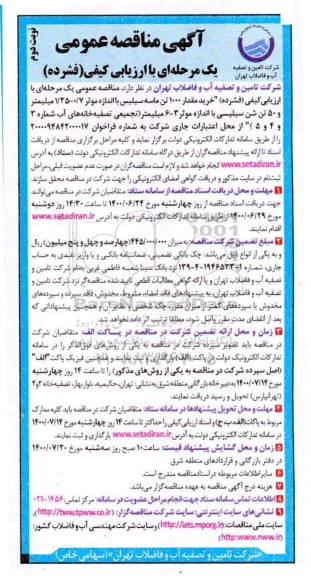 نوبت دوم
آگهی مناقصه عمومی
یک مرحله‌ای با ارزیابی کیفی (فشرده)
شرکت تامین و تصفیه
آب و فاضلاب تهران
شرکت تامین و تصفیه آب و فاضلاب تهران در نظر دارد، مناقصه عمومی یک مرحله‌ای با
ارزیابی کیفی (فشرده) "خرید مقدار ۱۰۰۰ تن ماسه سیلیس با اندازه موثر ۰/۷-۱/۳۵ میلیمتر
و ۵۰ تن شن سیلیسی با اندازه موثر ۳-۶ میلیمتر (تجمیعی تصفیه‌خانه‌های آب شماره ۳
و ۴ و ۵)" از محل اعتبارات جاری شرکت به شماره فراخوان ۲۰۰۰۰۹۴۸۴۲۰۰۰۰۱۷
را از طریق سامانه تدارکات الکترونیکی دولت برگزار نماید و کلیه مراحل برگزاری مناقصه از دریافت
اسناد تا ارائه پیشنهاد مناقصه‌گران از طریق درگاه سامانه تدارکات الکترونیکی دولت (ستاد) به آدرس
www.setadiran.ir انجام خواهد شد و لازم است مناقصه‌گران در صورت عدم عضویت قبلی، مراحل
ثبت‌نام در سایت مذکور و دریافت گواهی امضای الکترونیکی را جهت شرکت در مناقصه محقق سازند.
۱ مهلت و محل دریافت اسناد مناقصه از سامانه ستاد: متقاضیان شرکت در مناقصه می‌توانند
جهت دریافت اسناد مناقصه از روز چهارشنبه مورخ ۱۴۰۰/۰۶/۲۴ تا ساعت ۱۴:۳۰ روز دوشنبه
مورخ ۱۴۰۰/۰۶/۲۹ از طریق سامانه تدارکات الکترونیکی دولت به آدرس www.setadiran.ir
اقدام نمایند.
۲ مبلغ تضمین شرکت در مناقصه: به میزان ۴۴۵/۰۰۰/۰۰۰ (چهارصد و چهل و پنج میلیون) ریال
و به یکی از انواع ذیل می‌باشد: چک بانکی تضمینی، ضمانتنامه بانکی و یا واریز نقدی به حساب
تامین و تصفیه آب و فاضلاب تهران
بعد از انقضای مدت مقرر واصل شود، مطلقا ترتیب اثر داده نخواهد شد.
۳ زمان و محل ارائه تضمین شرکت در مناقصه در پاکت الف: متقاضیان شرکت
در مناقصه باید تصویر سپرده شرکت در مناقصه به یکی از روش‌های فوق‌الذکر را در سامانه
تدارکات الکترونیک دولت در پاکت (الف) بارگذاری و ثبت نمایند و همچنین فیزیک پاکت "الف"
(اصل سپرده شرکت در مناقصه به یکی از روش‌های مذکور) را تا ساعت ۱۴ روز چهارشنبه
مورخ ۱۴۰۰/۰۷/۱۴ به دبیرخانه بازرگانی منطقه شرق به نشانی: تهران، حکیمیه، بلوار بهار، تصفیه‌خانه ۳ و ۴
(تهرانپارس) تحویل و رسید دریافت نمایند.
۴ مهلت و محل تحویل پیشنهادها در سامانه ستاد: متقاضیان شرکت در مناقصه باید کلیه مدارک
مربوط به پاکات (الف، ب، ج) و اسناد ارزیابی کیفی را حداکثر تا ساعت ۱۴ روز چهارشنبه مورخ ۱۴۰۰/۰۷/۱۴
در سامانه تدارکات الکترونیکی دولت به آدرس www.setadiran.ir بارگذاری و ثبت نمایند.
۵ زمان و محل گشایش پیشنهاد قیمت: ساعت ۱۰ صبح روز سه‌شنبه مورخ ۱۴۰۰/۰۷/۲۰
در دفتر بازرگانی و قراردادهای منطقه شرق
۶ سایر اطلاعات مربوطه در اسناد مناقصه مندرج است.
۷ هزینه درج آگهی مناقصه به عهده مناقصه‌گزار می‌باشد.
۸ اطلاعات تماس سامانه ستاد جهت انجام مراحل عضویت در سامانه: مرکز تماس: ۱۴۵۶-۰۲۱
۹ نشانی‌های سایت اینترنتی: سایت شرکت مناقصه‌گزار: (http://www.tpww.co.ir)
سایت ملی مناقصات: (http://iets.mporg.ir) و سایت شرکت مهندسی آب و فاضلاب کشور:
(http:www.nww.ir)
«شرکت تامین و تصفیه آب و فاضلاب تهران» (سهامی خاص)